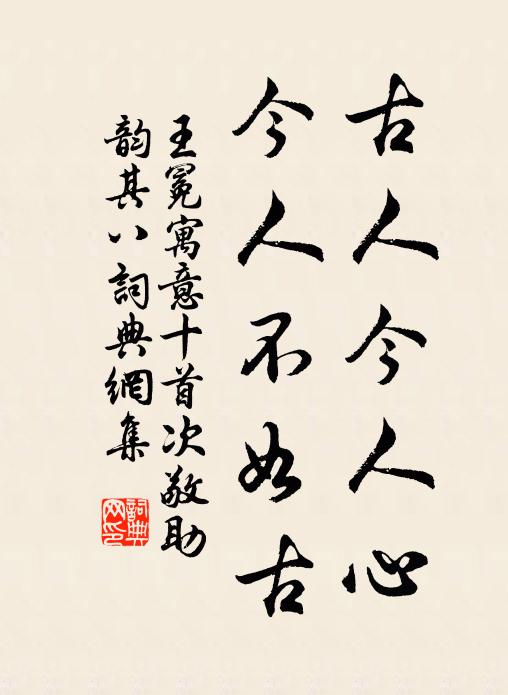 古人今人心
今人不如古
王冕寓意十首次敬助
韵其八詞典網集
詞典
网印